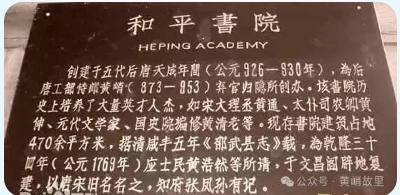 和平書院
HEPING ACADEMY
创建于五代后唐天成年間(公元926—930年),為后
唐工部侍郎黄峭(873—953)弃官归隐所创办。該書院历
史上培养了大量英才人杰,如宋大理丞黄通、太仆司农卿黄
伸、元代文学家、国史院编修黄清老等。现存書院建筑占地
470余平方米,据清咸丰五年《邵武县志》载,為乾隆三十
四年(公元1769年)应士民黄浩然等所请,于文昌阁辟地复
建,以唐宋旧名名之,知府张凤孙有记。
公众号·黄峭故里